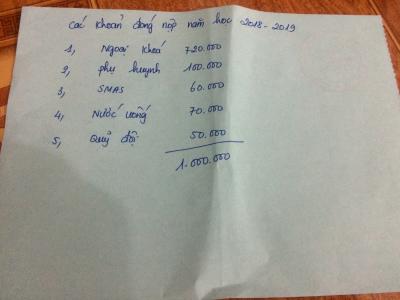 Các khoản đóng nộp năm học 2018-2019
1, Ngoại khoá 720.000
2, phụ huynh 100.000
3, SMAS 60.000
4, Nước uống 70.000
5, Quỹ đội 50.000
1.000.000